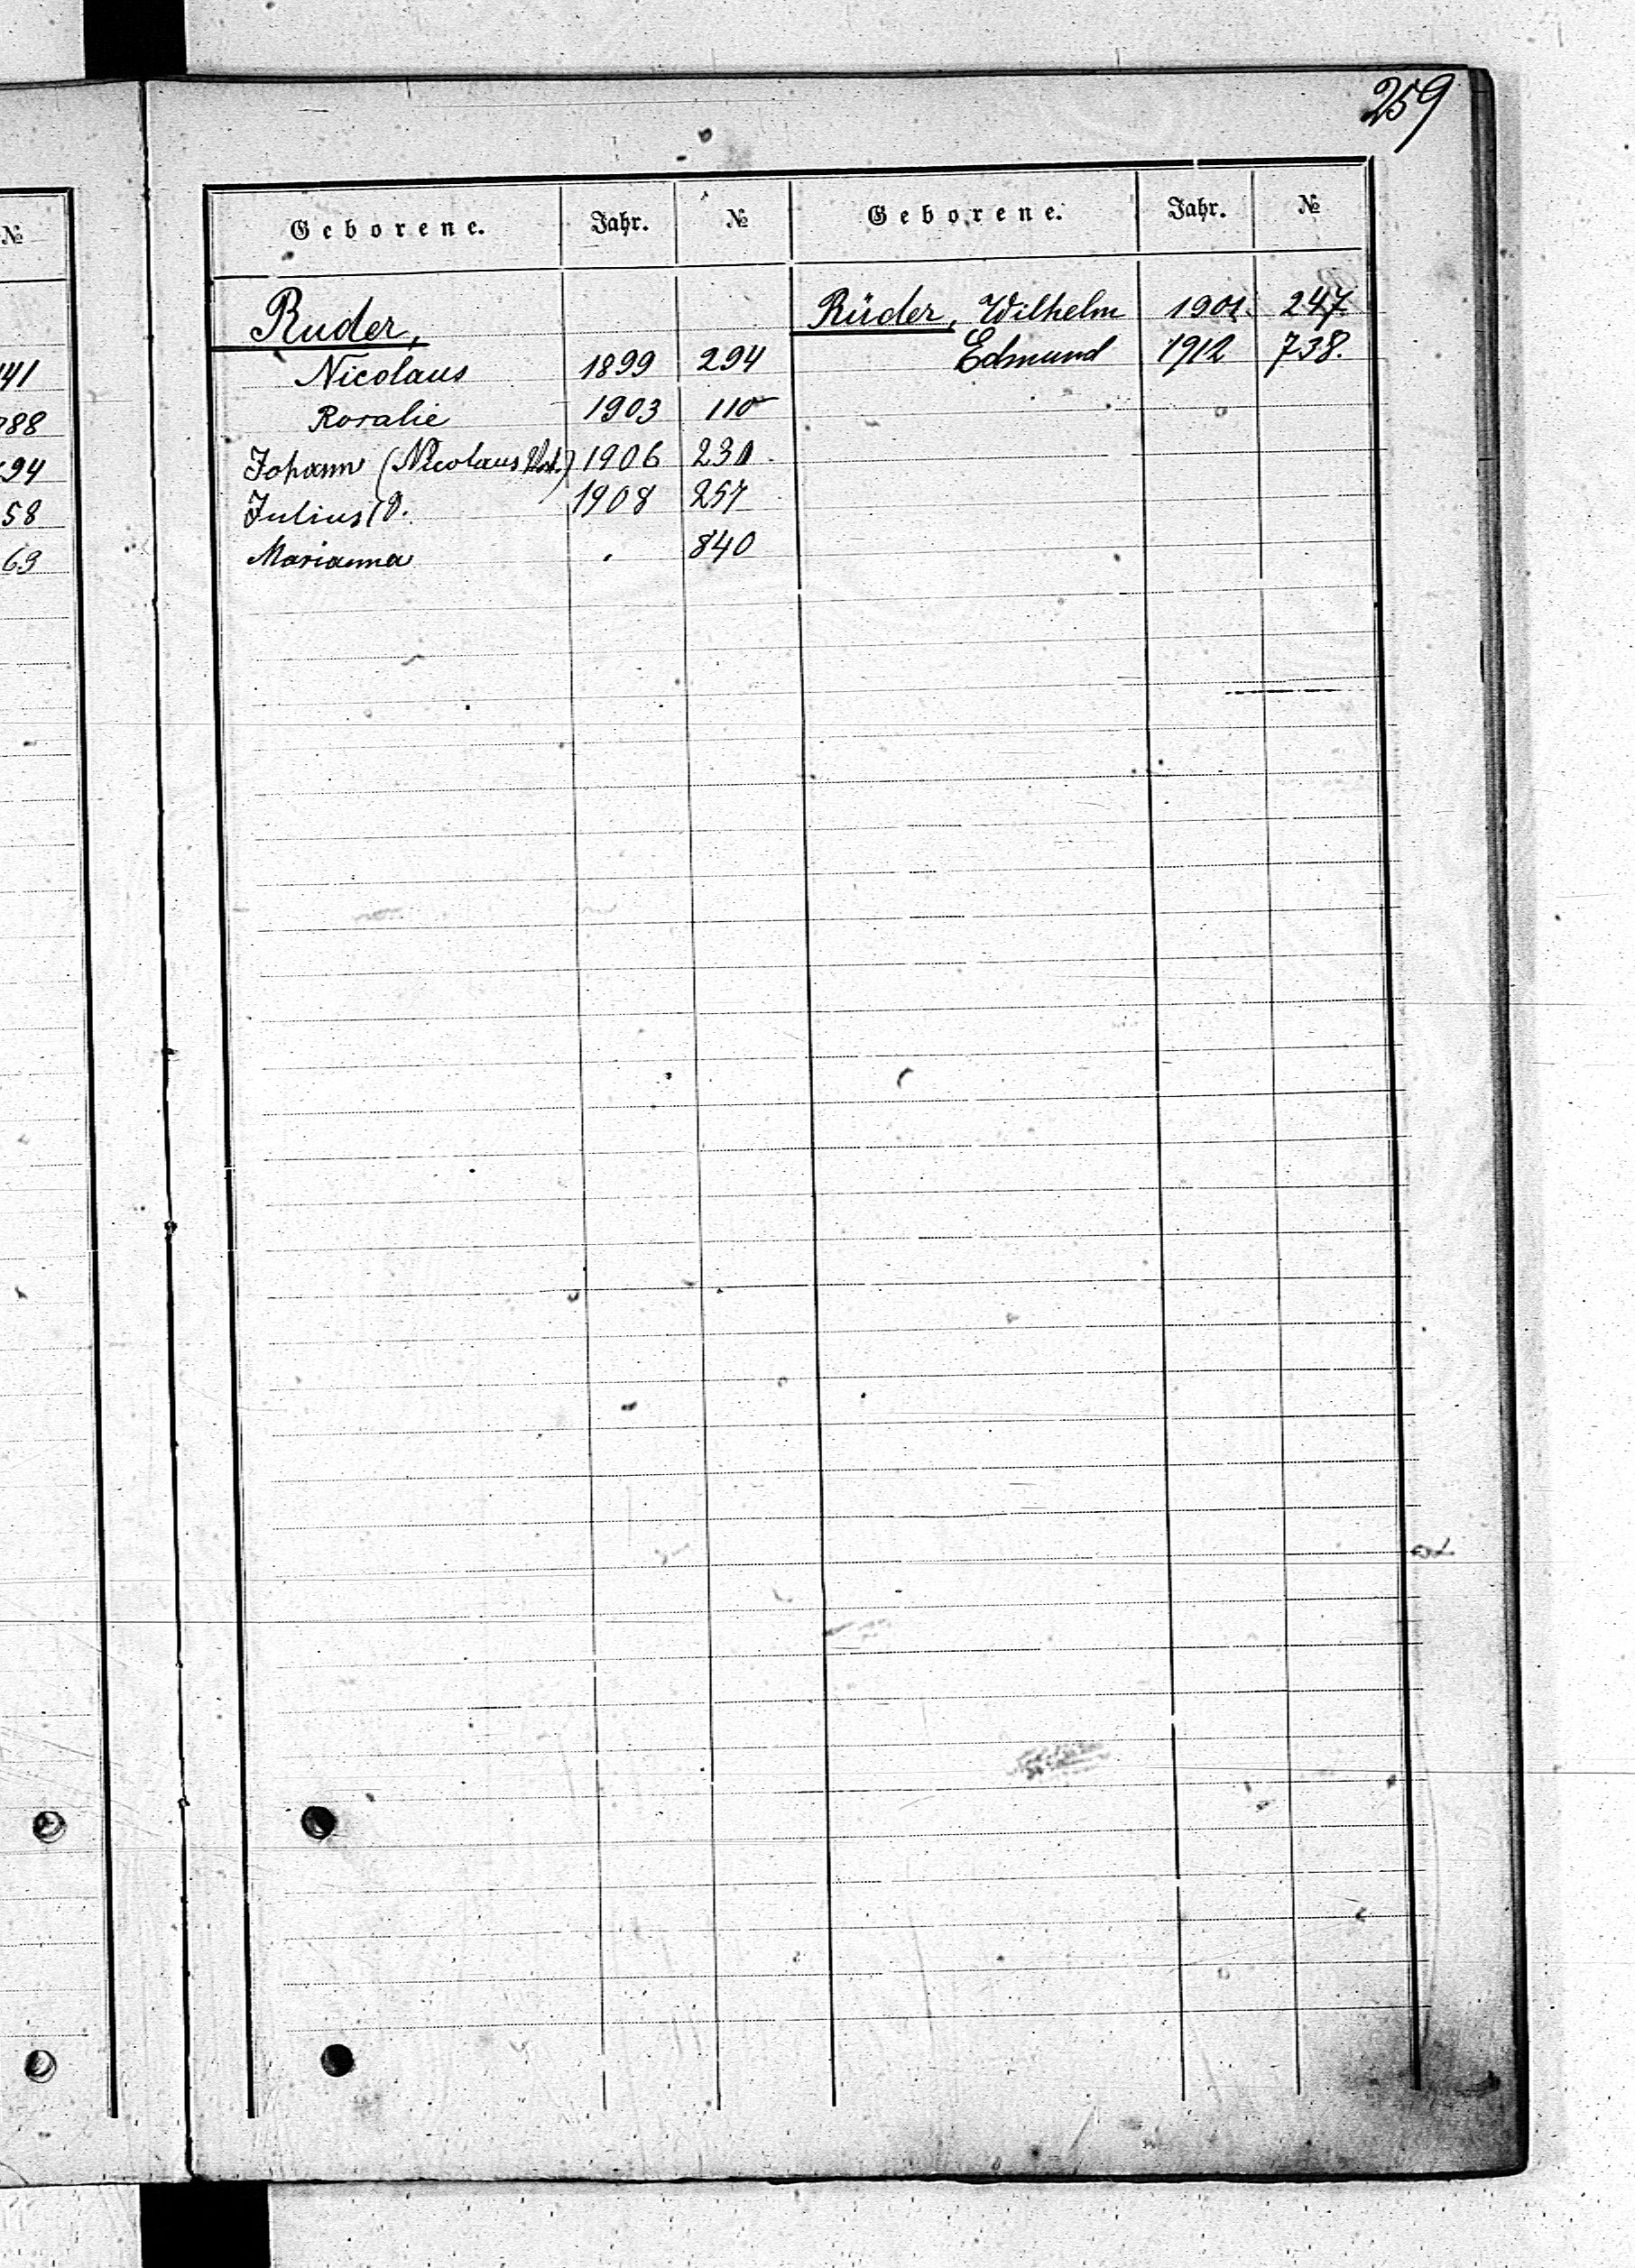 259
Geborene. Jahr. № Geborene. Jahr. №
№
Ruder,
Nicolaus 1899 294
Rosalie 1903 110
Johann (Nicolaus 1906 230
Julius 1908 257
Marianna . 840
Rüder, Wilhelm 1901. 247.
Edmund 1912 738.
41
88
94
58
63